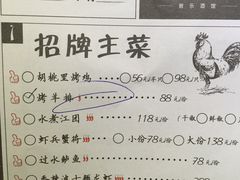 音乐酒馆
1 招牌主菜
胡桃里烤鸡 56元/半只 98元/只
烤羊排 88元/份
水煮江团 118元/份 (干椒 鲜椒
虾兵蟹将 小份78元/份 大份138元/份
过水鲈鱼 78元/份